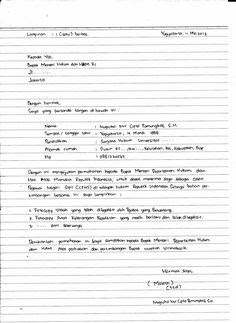 Lampiran : 1 (satu) berkas. Yogyakarta, 11 Mei 2013
Kepada Yth.
Bapak Menteri Hukum dan HAM RI
Jl.
Jakarta
Dengan hormat,
Saya yang bertanda tangan di bawah ini :
Nama : Nugroho Nur Cipto
Tempat / tanggal lahir : Yogyakarta, 14 Maret 1988
Pendidikan : Sarjana Hukum Universitas
Alamat rumah : Dusun
Hp :
Dengan ini mengajukan permohonan kepada Bapak Menteri Departemen Hukum dan
Hak Asasi Manusia Republik Indonesia, untuk dapat menerima saya sebagai Calon
Pegawai Negeri Sipil (CPNS) di wilayah hukum Republik Indonesia. Sebagai bahan per-
timbangan bersama ini saya lampirkan :
1. Fotocopy Ijazah yang telah dilegalisir oleh Pejabat yang Berwenang.
2. Fotocopy Surat Keterangan yang masih berlaku dan telah dilegalisir.
3. dan seterusnya
Demikianlah permohonan ini Saya sampaikan kepada Bapak Menteri Departemen Hukum
dan HAM. Atas perhatian dan pertimbangan Bapak ucapkan terimakasih.
Hormat Saya,
( Materai )
Nugroho Nur Cipto